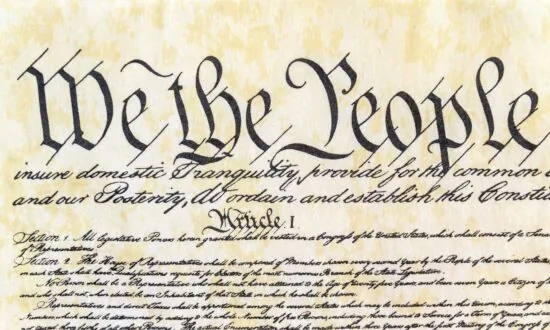 We the People
insure domestic Tranquility, provide for the common
and our Posterity, do ordain and establish this Consti
Article. I.
Section. 1. All legislative Powers herein granted shall be vested in a Congress of the United States, which shall consist of a Sena
of Representatives.
Section. 2. The House of Representatives shall be composed of Members chosen every second Year by the People of the several States
in each State shall have Qualifications requisite for Electors of the most numerous Branch of the State Legislature.
No Person shall be a Representative who shall not have attained to the Age of twenty five Years, and been seven Years a Citizen of
and who shall not, when elected, be an Inhabitant of that State in which he shall be chosen.
Representatives and direct Taxes shall be apportioned among the several States which may be included within this Union, according to
Numbers, which shall be determined by adding to the whole Number of free Persons, including those bound to Service for a Term of Years, and
not taxed, three fifths of all other Persons. The actual Enumeration shall be made within three Years after the first Meeting of the Cong